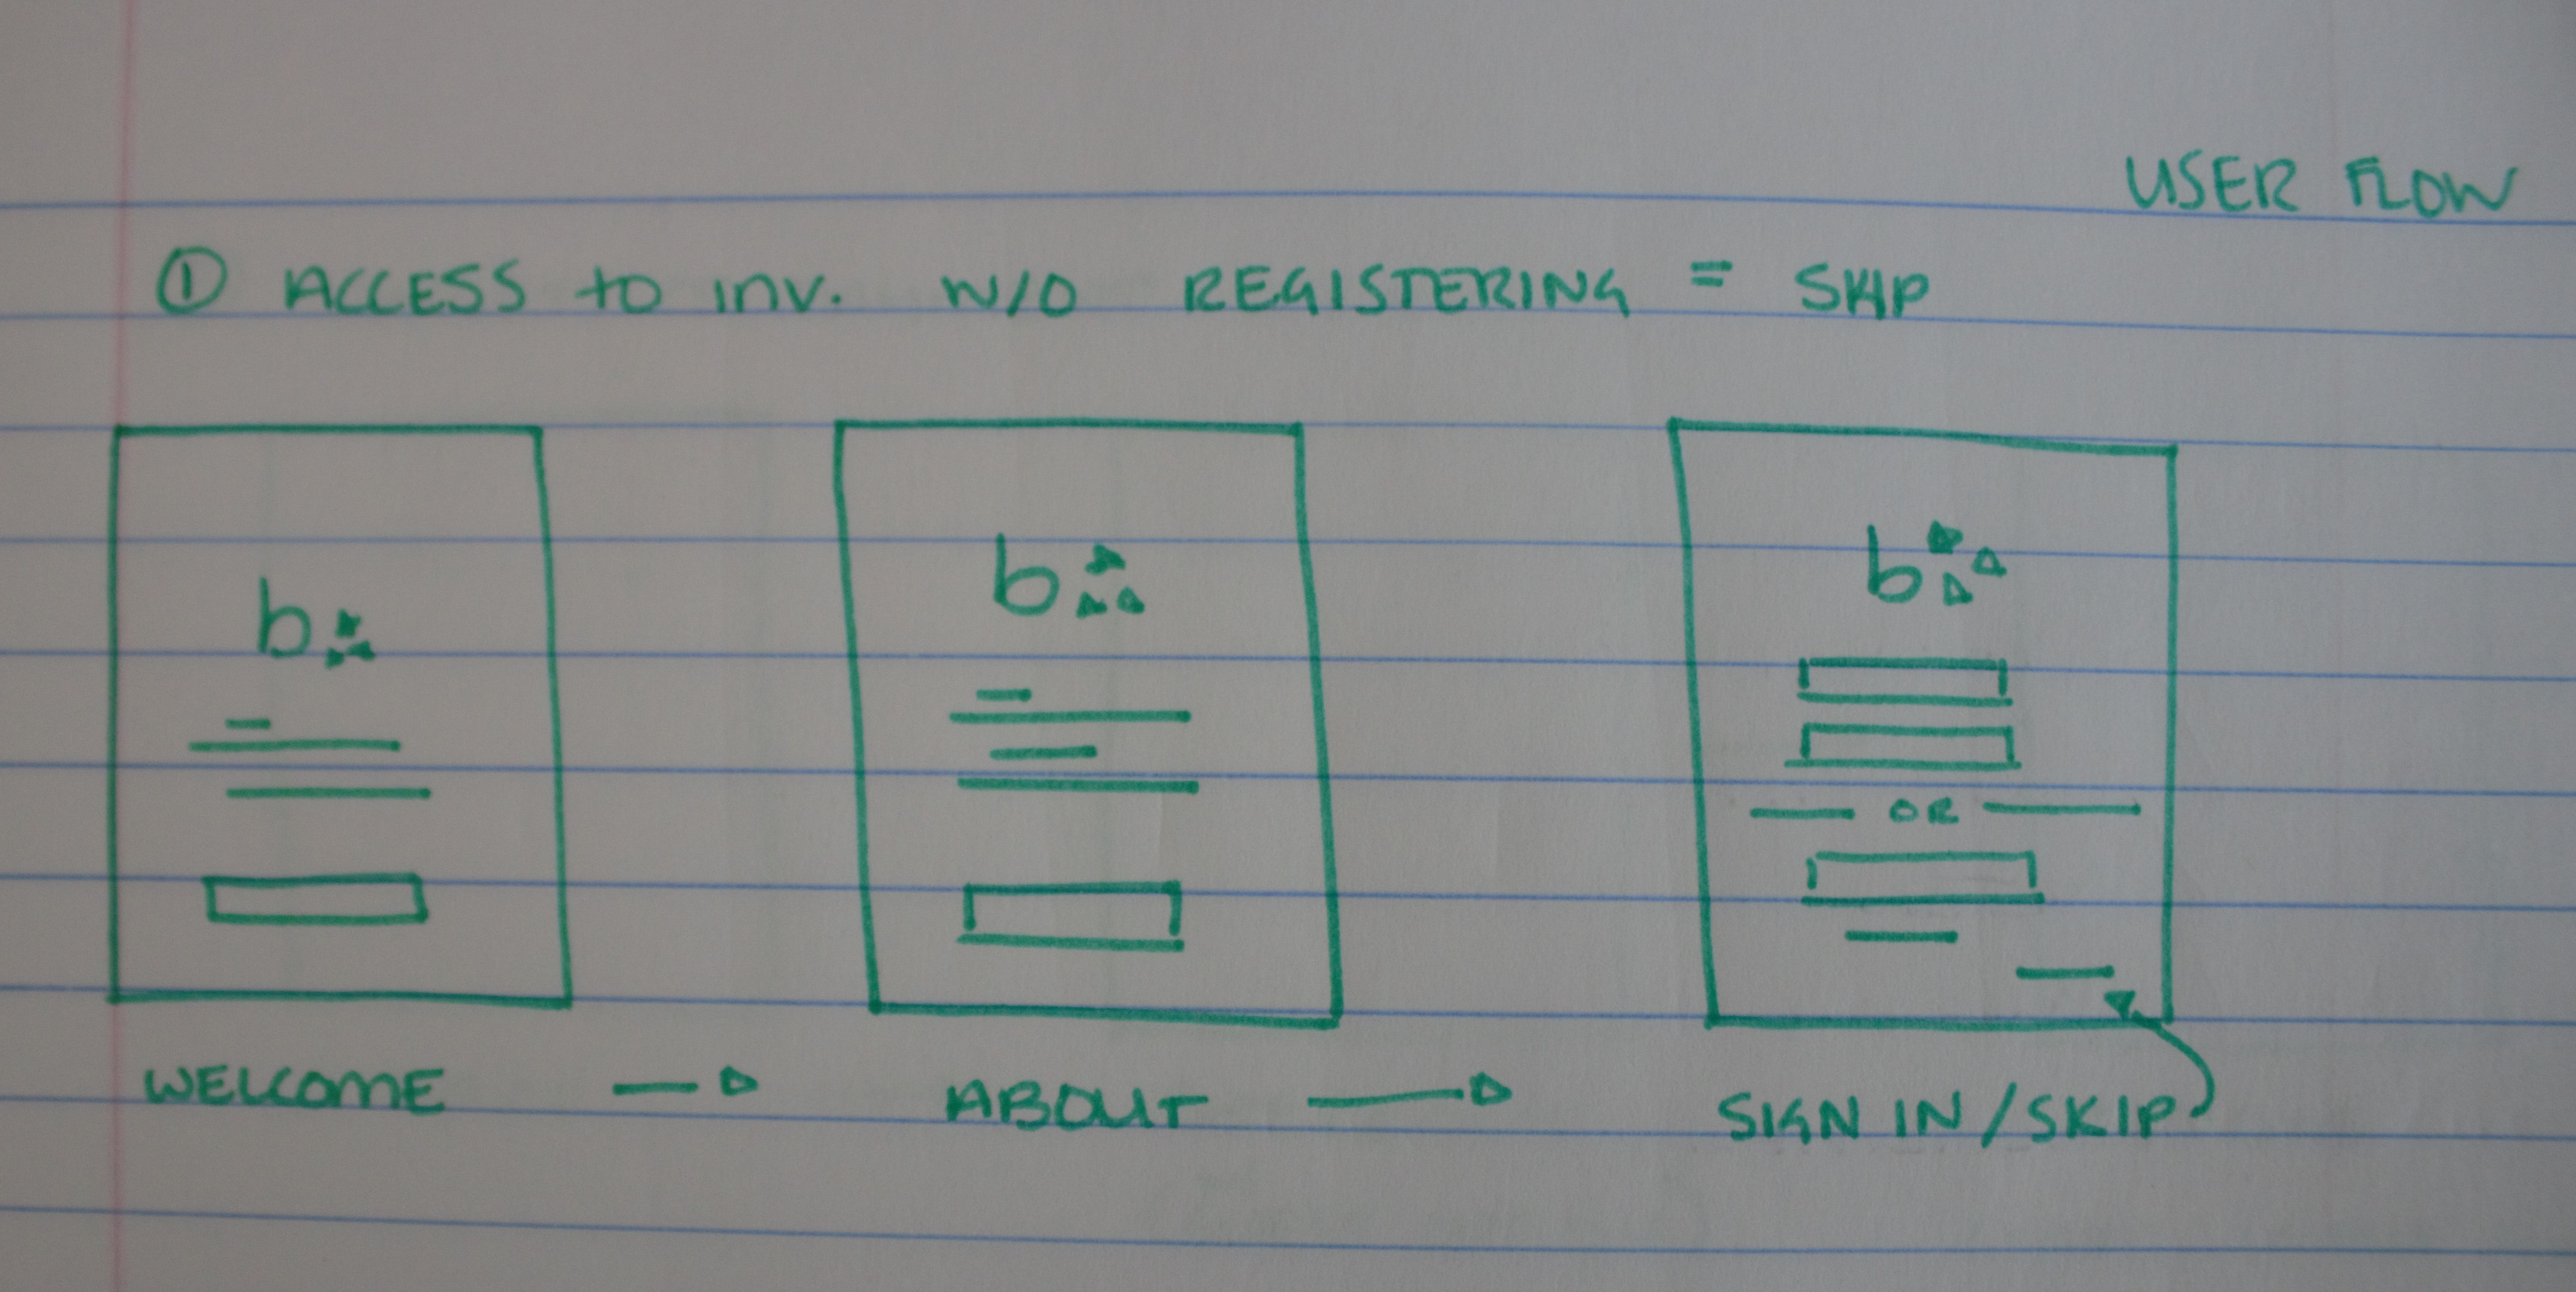 USER FLOW
① ACCESS to inv. W/O REGISTERING = SKIP
b
b
b
OR
WELCOME → ABOUT → SIGN IN/SKIP